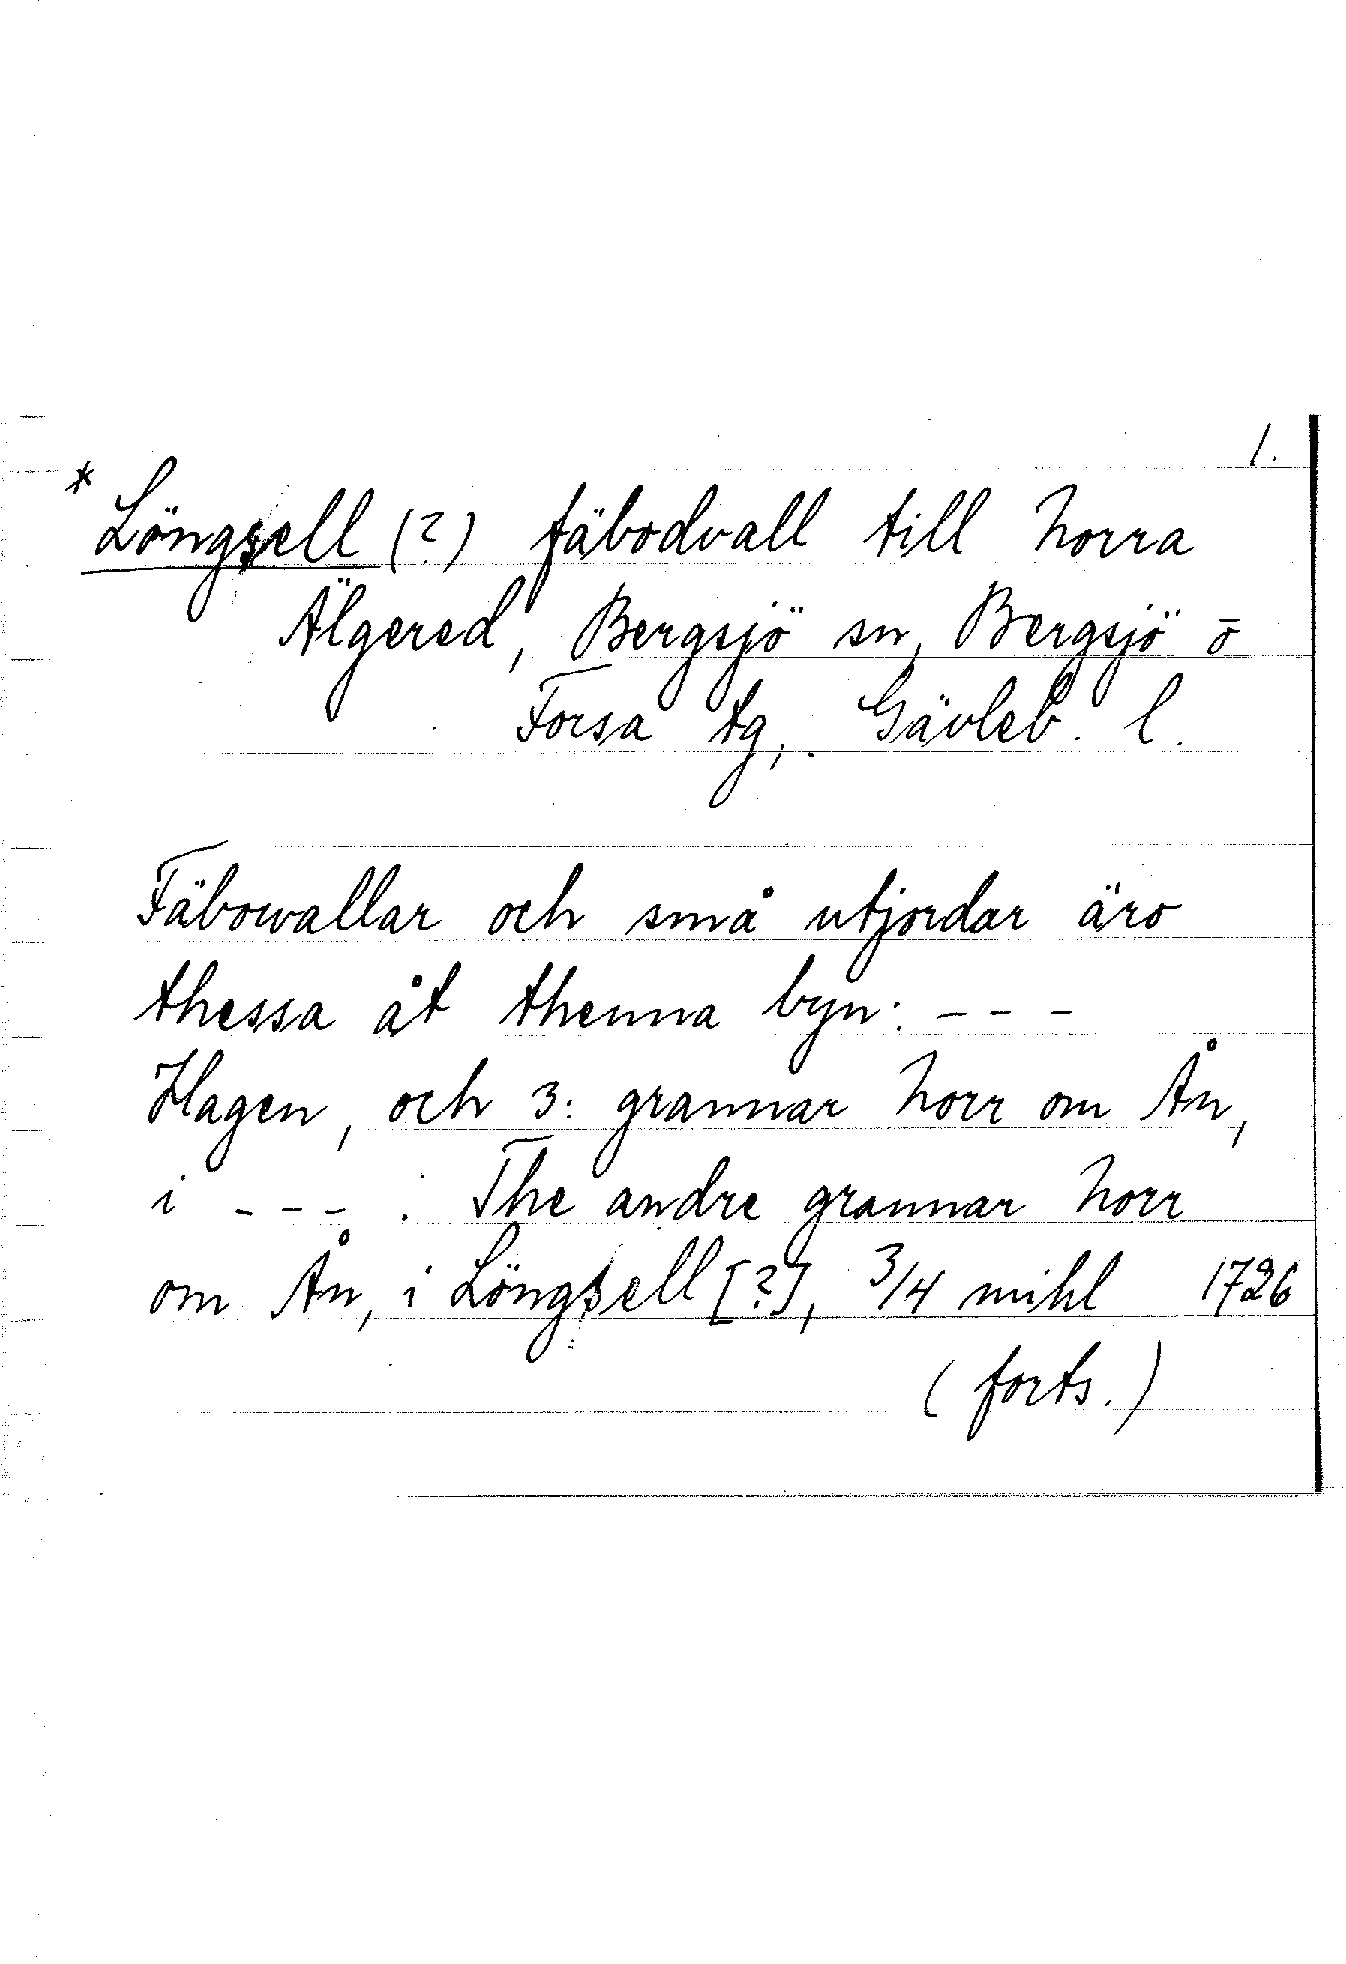 1.
* Löngsell (?) fäbodvall till Norra
Älgered, Bergsjö sn, Bergsjö o
Forsa tg, Gävleb. l.
Fäbowallar och små utjordar äro
thessa åt thenna byn: - - -
Hagen, och 3: grannar Norr om Ån,
i - - - . The andre grannar Norr
om Ån, i Löngsell [?], 3/4 mihl 1726
(forts.)